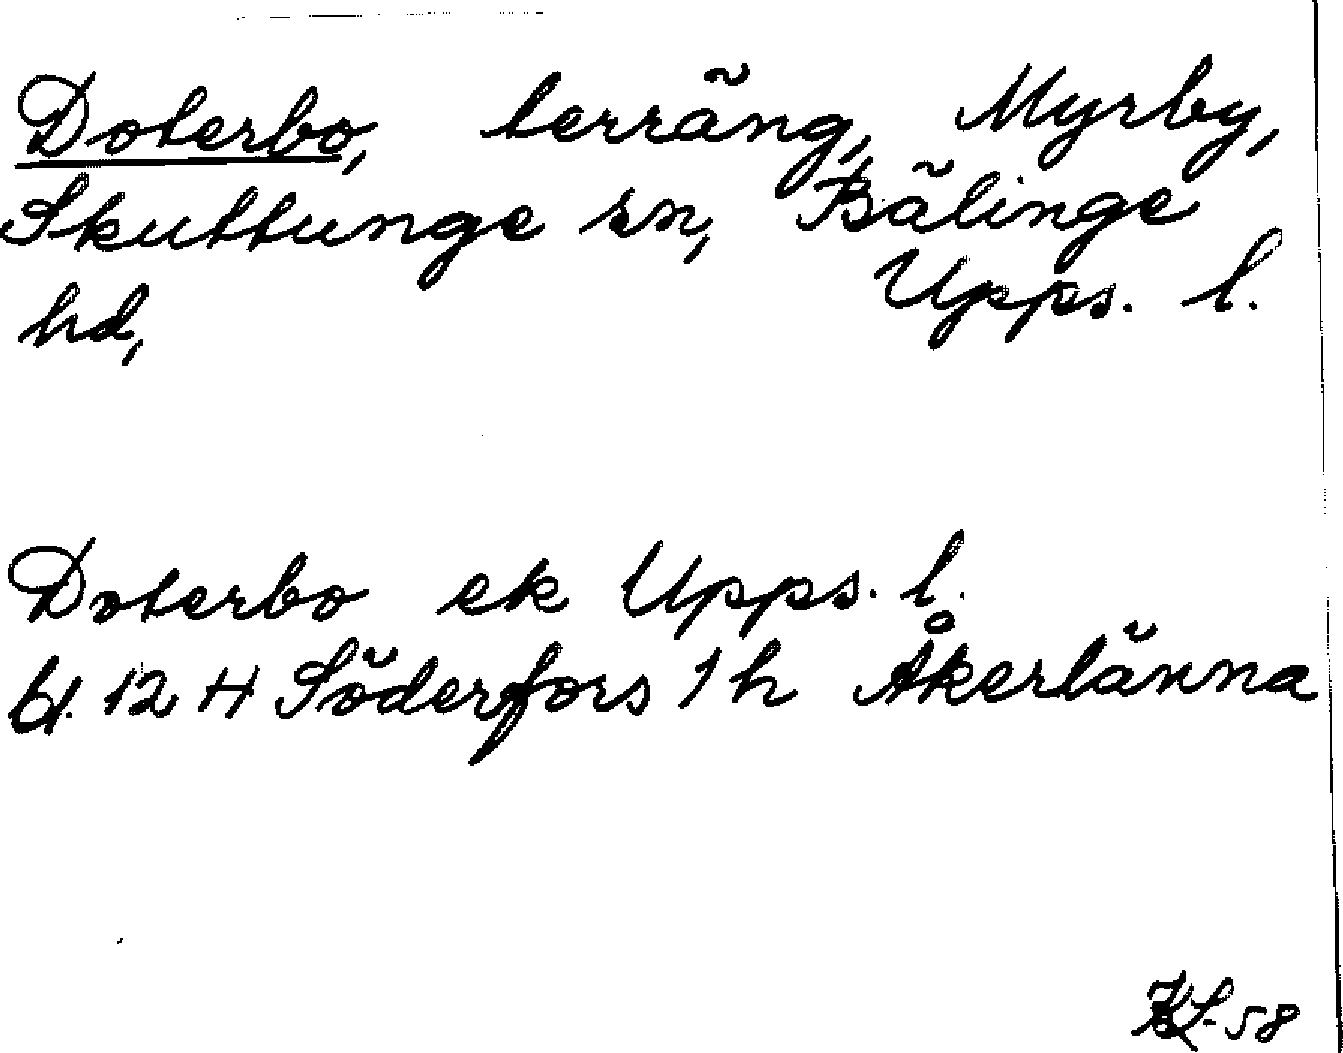 Doterbo, terräng, Myrby,
Skuttunge sn, Bälinge
hd, Upps. l.
Doterbo ek Upps. l.
bl. 12 H Söderfors 1 h Åkerlänna
KL-58